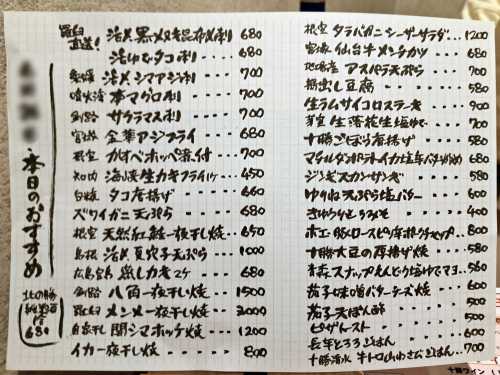 本日のおすすめ
羅臼直送！ 活〆黒メヌキ昆布〆刺 680
活ゆでタコ刺 ・・・・ 680
愛媛 活〆シマアジ刺 ・・・ 700
噴火湾 本マグロ刺 ・・・・ 700
釧路 サクラマス刺 ・・・・ 700
宮城 金華アジフライ ・・・ 680
根室 カオベホッペ添付 ・・・ 700
知内 海峡生カキフライ 450
白糠 タコ唐揚げ ・・・・ 660
ズワイガニ天ぷら ・・・・ 680
根室 天然紅鮭一夜干し焼 ・・・ 650
島根 活〆穴子天ぷら ・・・ 1000
広島宮島 蒸しカキ2ケ ・・・・ 680
釧路 八角一夜干し焼 ・・・ 1500
羅臼 メンメ一夜干し焼 ・・・ 2000
自家干 開シマホッケ焼 ・・・ 1200
イカ一夜干し焼 ・・・・ 800
北の勝 680
根室 タラバガニシーザーサラダ ・・・ 1200
宮城 仙台牛メンチカツ ・・・ 680
アスパラ天ぷら ・・・ 700
揚出し豆腐 ・・・・ 580
生ラムサイコロステーキ ・・・ 900
芽室 生落花生塩ゆで ・・・ 700
十勝ごぼう唐揚げ ・・・ 580
680
ジンギスカンサンキ ・・・ 580
ゆりね天ぷら塩バター ・・・ 600
きゅうりともろみそ ・・・ 400
800
十勝大豆の厚揚げ焼 ・・・ 580
スナップえんどう塩ゆでマヨ ・・・ 560
茄子味噌バターチーズ焼 ・・・ 600
茄子天ぽん酢 ・・・・ 500
ピザトースト ・・・・ 600
長芋とろろごはん ・・・ 600
十勝清水 牛トロ山わさびごはん ・・・ 700
十勝ワイン